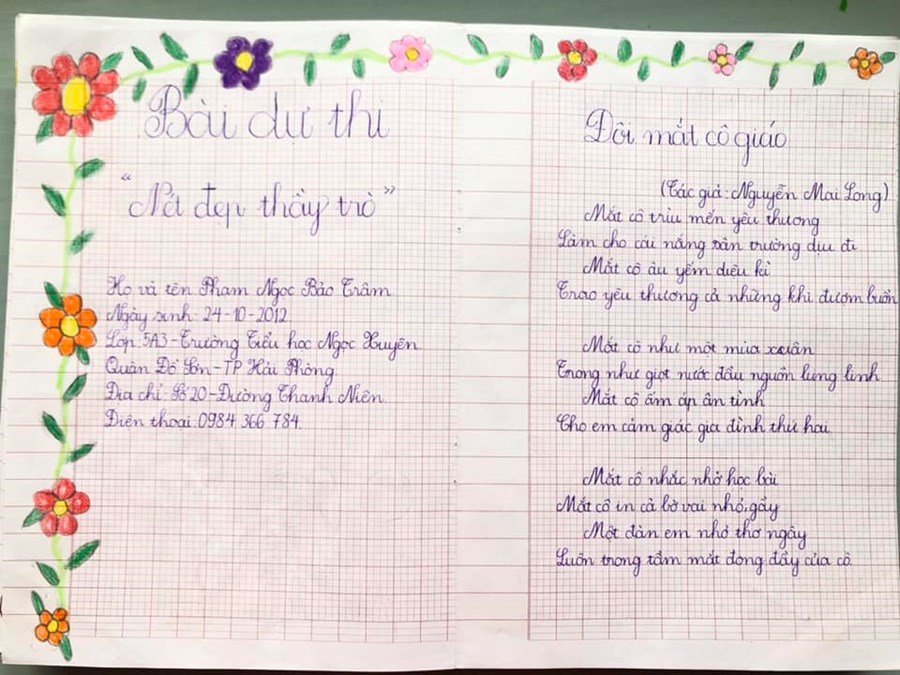 Bài dự thi
"Nét đẹp thầy trò"
Họ và tên Phạm Ngọc Bảo Trâm
Ngày sinh: 24-10-2012
Lớp 5A3-Trường Tiểu học Ngọc Xuyên
Quận Đồ Sơn-TP Hải Phòng
Địa chỉ: Số 20-Đường Thanh Niên
Điện thoại: 0984 366 784
Đôi mắt cô giáo
(Tác giả: Nguyễn Mai Long)
Mắt cô trìu mến yêu thương
Làm cho cái nắng sân trường dịu đi
Mắt cô âu yếm diệu kì
Trao yêu thương cả những khi đượm buồn
Mắt cô như một mùa xuân
Trong như giọt nước đầu nguồn lung linh
Mắt cô ấm áp ân tình
Cho em cảm giác gia đình thứ hai
Mắt cô nhắc nhở học bài
Mắt cô in cả bờ vai nhỏ, gầy
Một đàn em nhỏ thơ ngây
Luôn trong tầm mắt đong đầy của cô